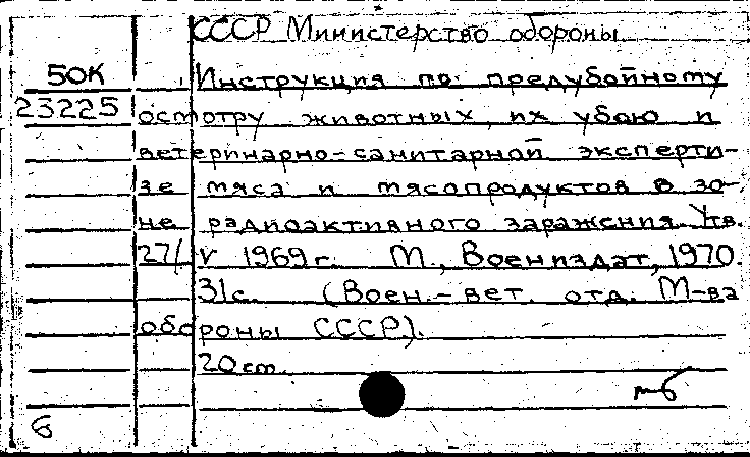 СССР Министерство обороны
50К Инструкция по предубойному
23225 осмотру животных, их убою и
ветеринарно-санитарной эксперти-
зе мяса и мясопродуктов в зо-
не радиоактивного заражения. Утв.
27/V 1969г. М., Воениздат, 1970.
31с. (Воен.-вет. отд. М-ва
обороны СССР).
20 cm.
мб
6